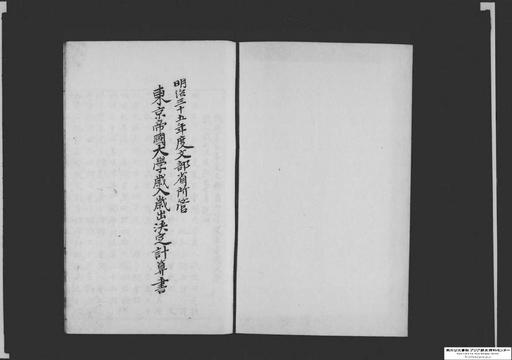 明治三十五年度文部省所管
東京帝國大學歳入歳出決定計算書